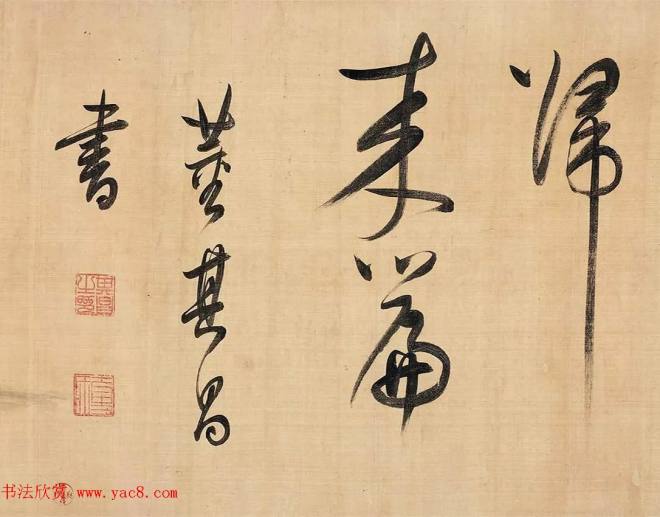 歸
來篇
董其昌
書
書法欣赏 www.yac8.com